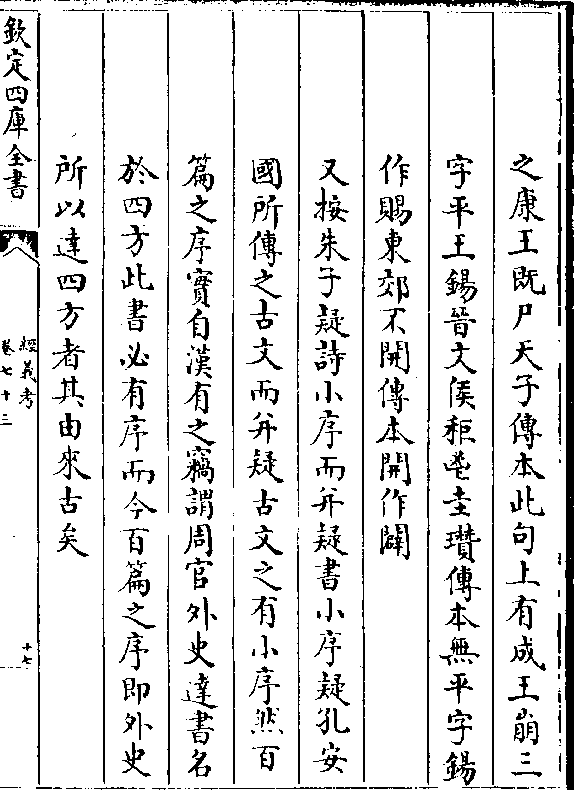 之康王既尸天子傳本此句上有成王崩三
字平王錫晉文侯秬鬯圭瓚傳本無平字錫
作賜東郊不開傳本開作闢
又按朱子疑詩小序而并疑書小序疑孔安
國所傳之古文而并疑古文之有小序然百
篇之序實自漢有之竊謂周官外史達書名
於四方此書必有序而今百篇之序即外史
所以達四方者其由來古矣
欽定四庫全書
經義考
卷七十三
十七